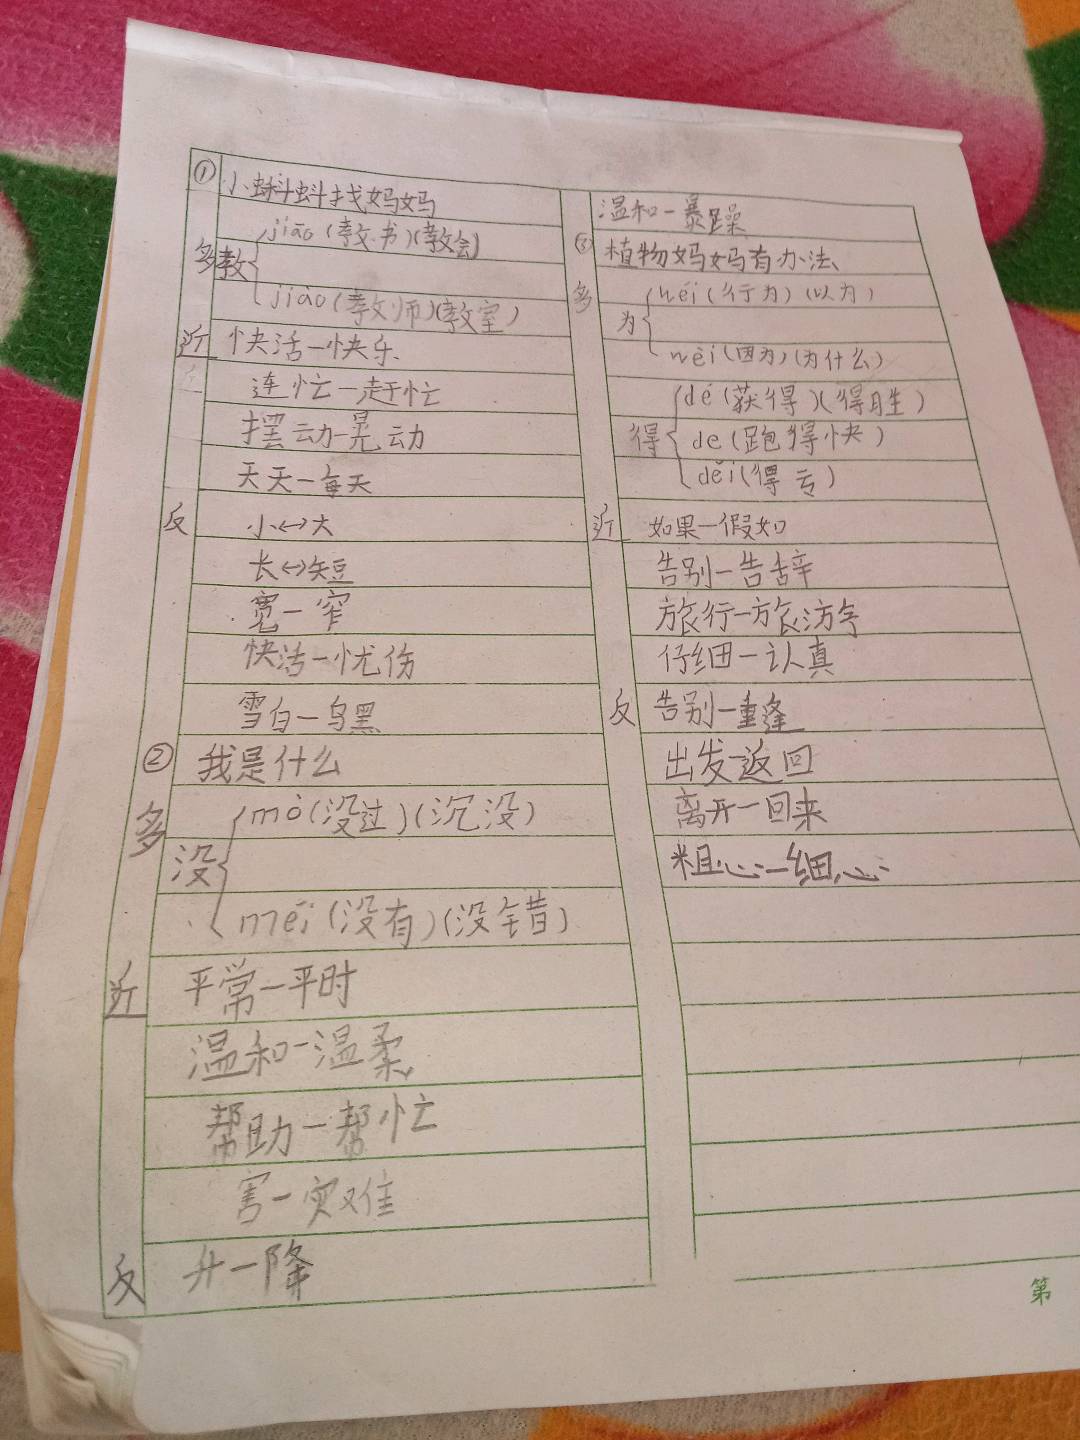 ① 小蝌蚪找妈妈
多 教 jiāo(教书)(教会)
jiào(教师)(教室)
近 快活—快乐
连忙—赶忙
摆动—晃动
天天—每天
反 小↔大
长↔短
宽—窄
快活—忧伤
雪白—乌黑
② 我是什么
多 没 mò(没过)(沉没)
méi(没有)(没错)
近 平常—平时
温和—温柔
帮助—帮忙
害—灾难
反 升—降
温和—暴躁
③ 植物妈妈有办法
多 为 wéi(行为)(以为)
wèi(因为)(为什么)
得 dé(获得)(得胜)
de(跑得快)
děi(得亏)
近 如果—假如
告别—告辞
旅行—旅游
仔细—认真
反 告别—重逢
出发—返回
离开—回来
粗心—细心
第